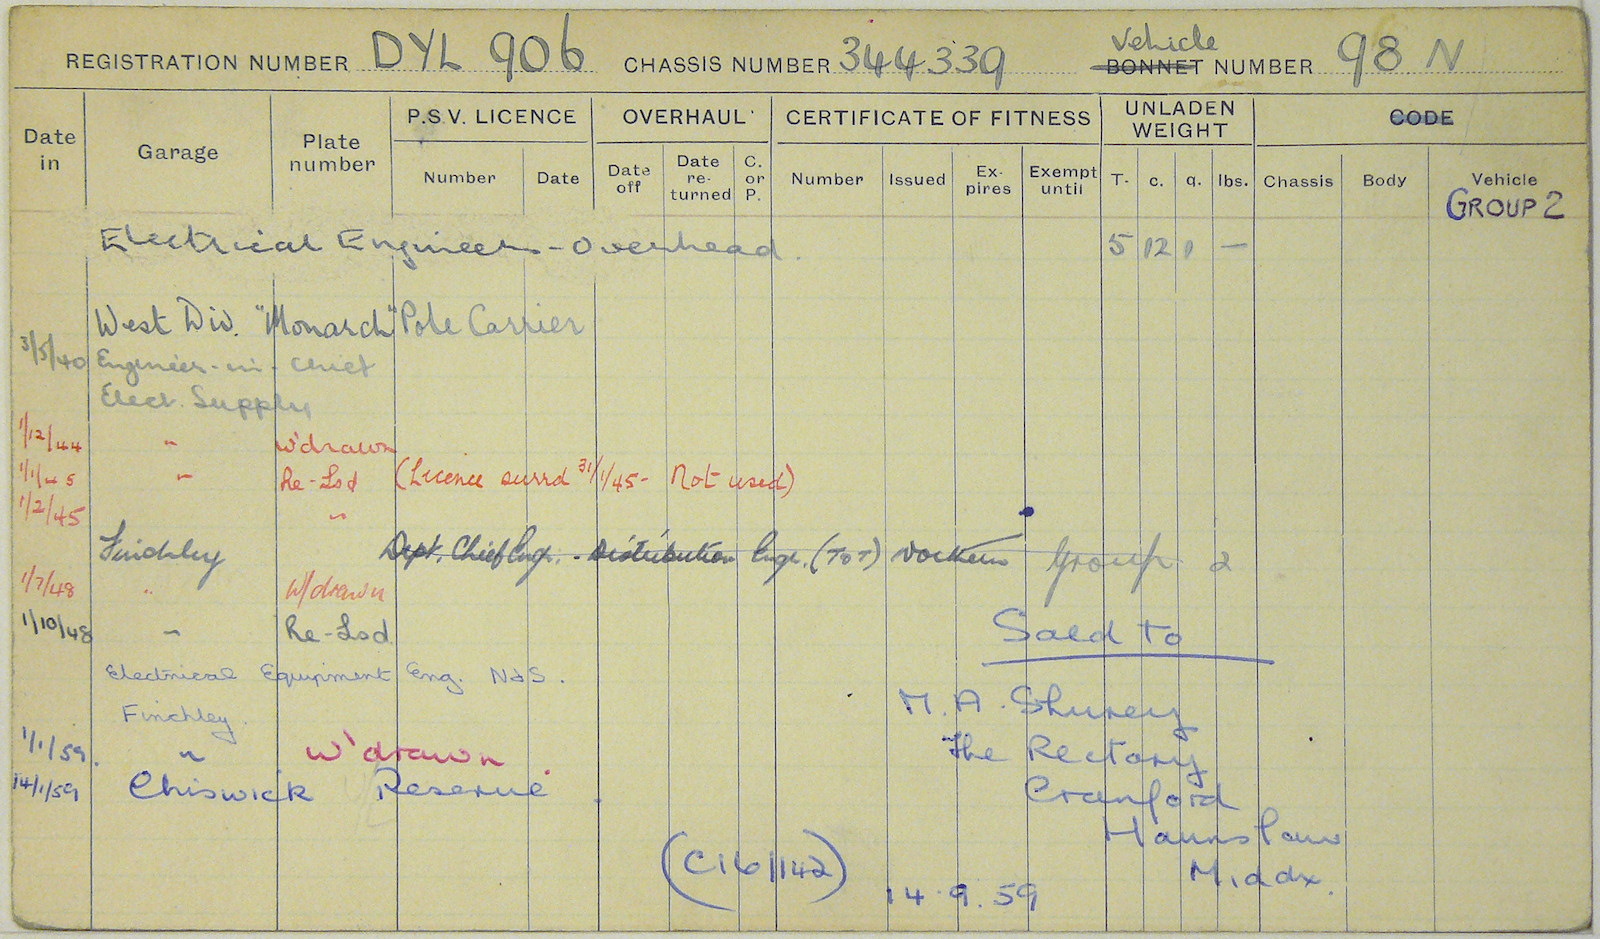 REGISTRATION NUMBER DYL 906 CHASSIS NUMBER 344339 Vehicle BONNET NUMBER 98 N
Date in Garage Plate number P.S.V. LICENCE OVERHAUL CERTIFICATE OF FITNESS UNLADEN WEIGHT CODE
Number Date Date off Date re-turned C. or P. Number Issued Ex-pires Exempt until T. c. q. lbs. Chassis Body Vehicle
GROUP 2
Electrical Engineers - Overhead. 5 12 1 —
West Div. "Monarch" Pole Carrier
3/5/40 Engineer-in-Chief
Elect. Supply
1/12/44 " W'drawn
1/1/45 " Re-Lsd (Licence surrd 31/1/45 - Not used)
1/2/45 "
Finchley Dept. Chief Engr. - Distribution Engr. (TOT) Northern Group 2
1/7/48 " W/drawn
1/10/48 " Re-Lsd
Sold to
Electrical Equipment Eng. N&S.
M. A. Shurey
Finchley.
The Rectory
1/1/59. " W'drawn.
14/1/59 Chiswick Reserve
Cranford
Hounslow
(C16/142)
Middx.
14.9.59